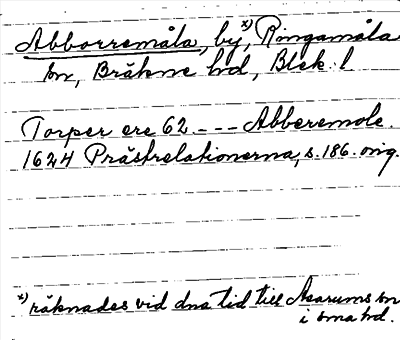 Abborremåla, by,ˣ⁾ Ringamåla
sn, Bräkne hd, Blek. l
Torper ere 62. - - - Abberemole.
1624 Prästrelationerna, s. 186. orig.
ˣ⁾ räknades vid dna tid till Asarums sn
i sma hd.